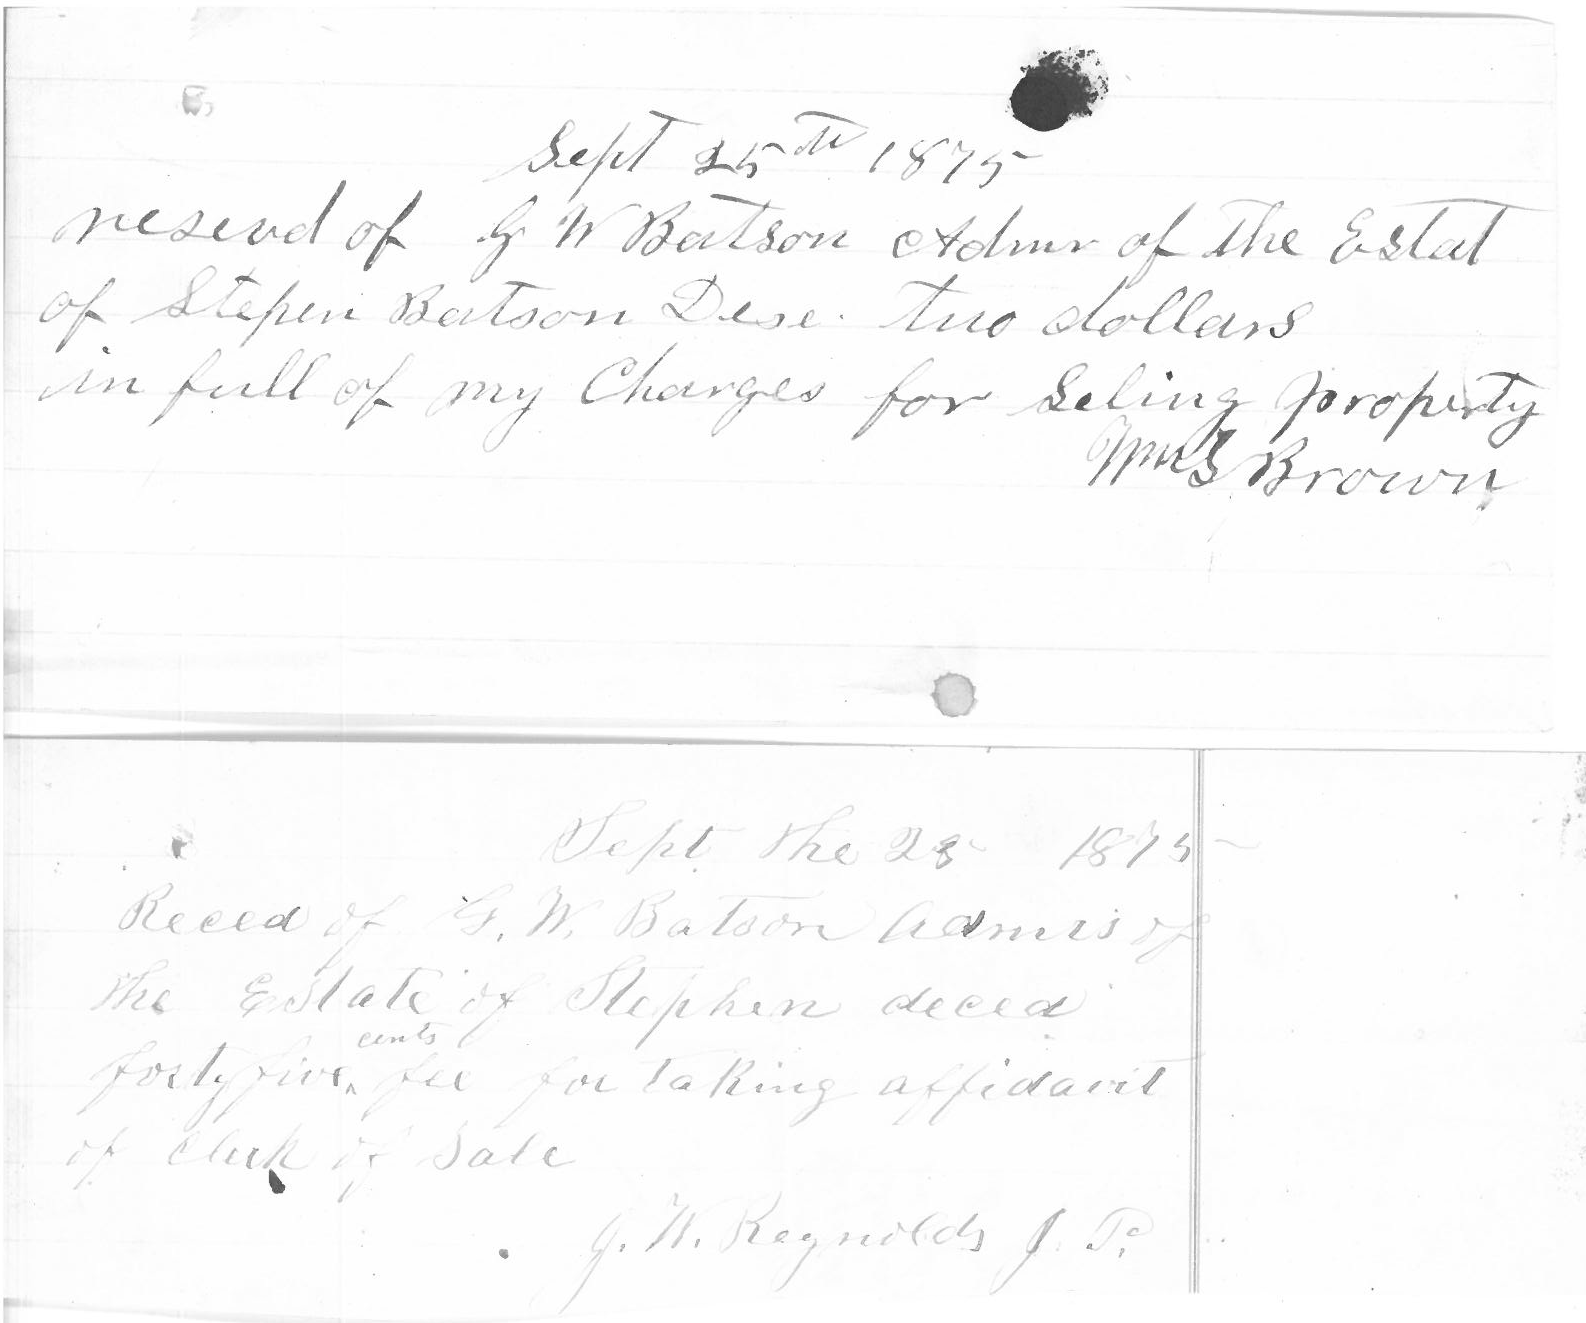 Sept 25th 1875
reserd of G W Batson Admr of the Estat
of Stepen Batson Dese. two dollars
in full of my Charges for Seling property
Wm S Brown
Sept the 25 1875
Reced of G. W. Batson Admrs of
the Estate of Stephen deced
forty five cents fee for taking affidavit
of Clerk of Sale
J. W. Reynolds J. P.